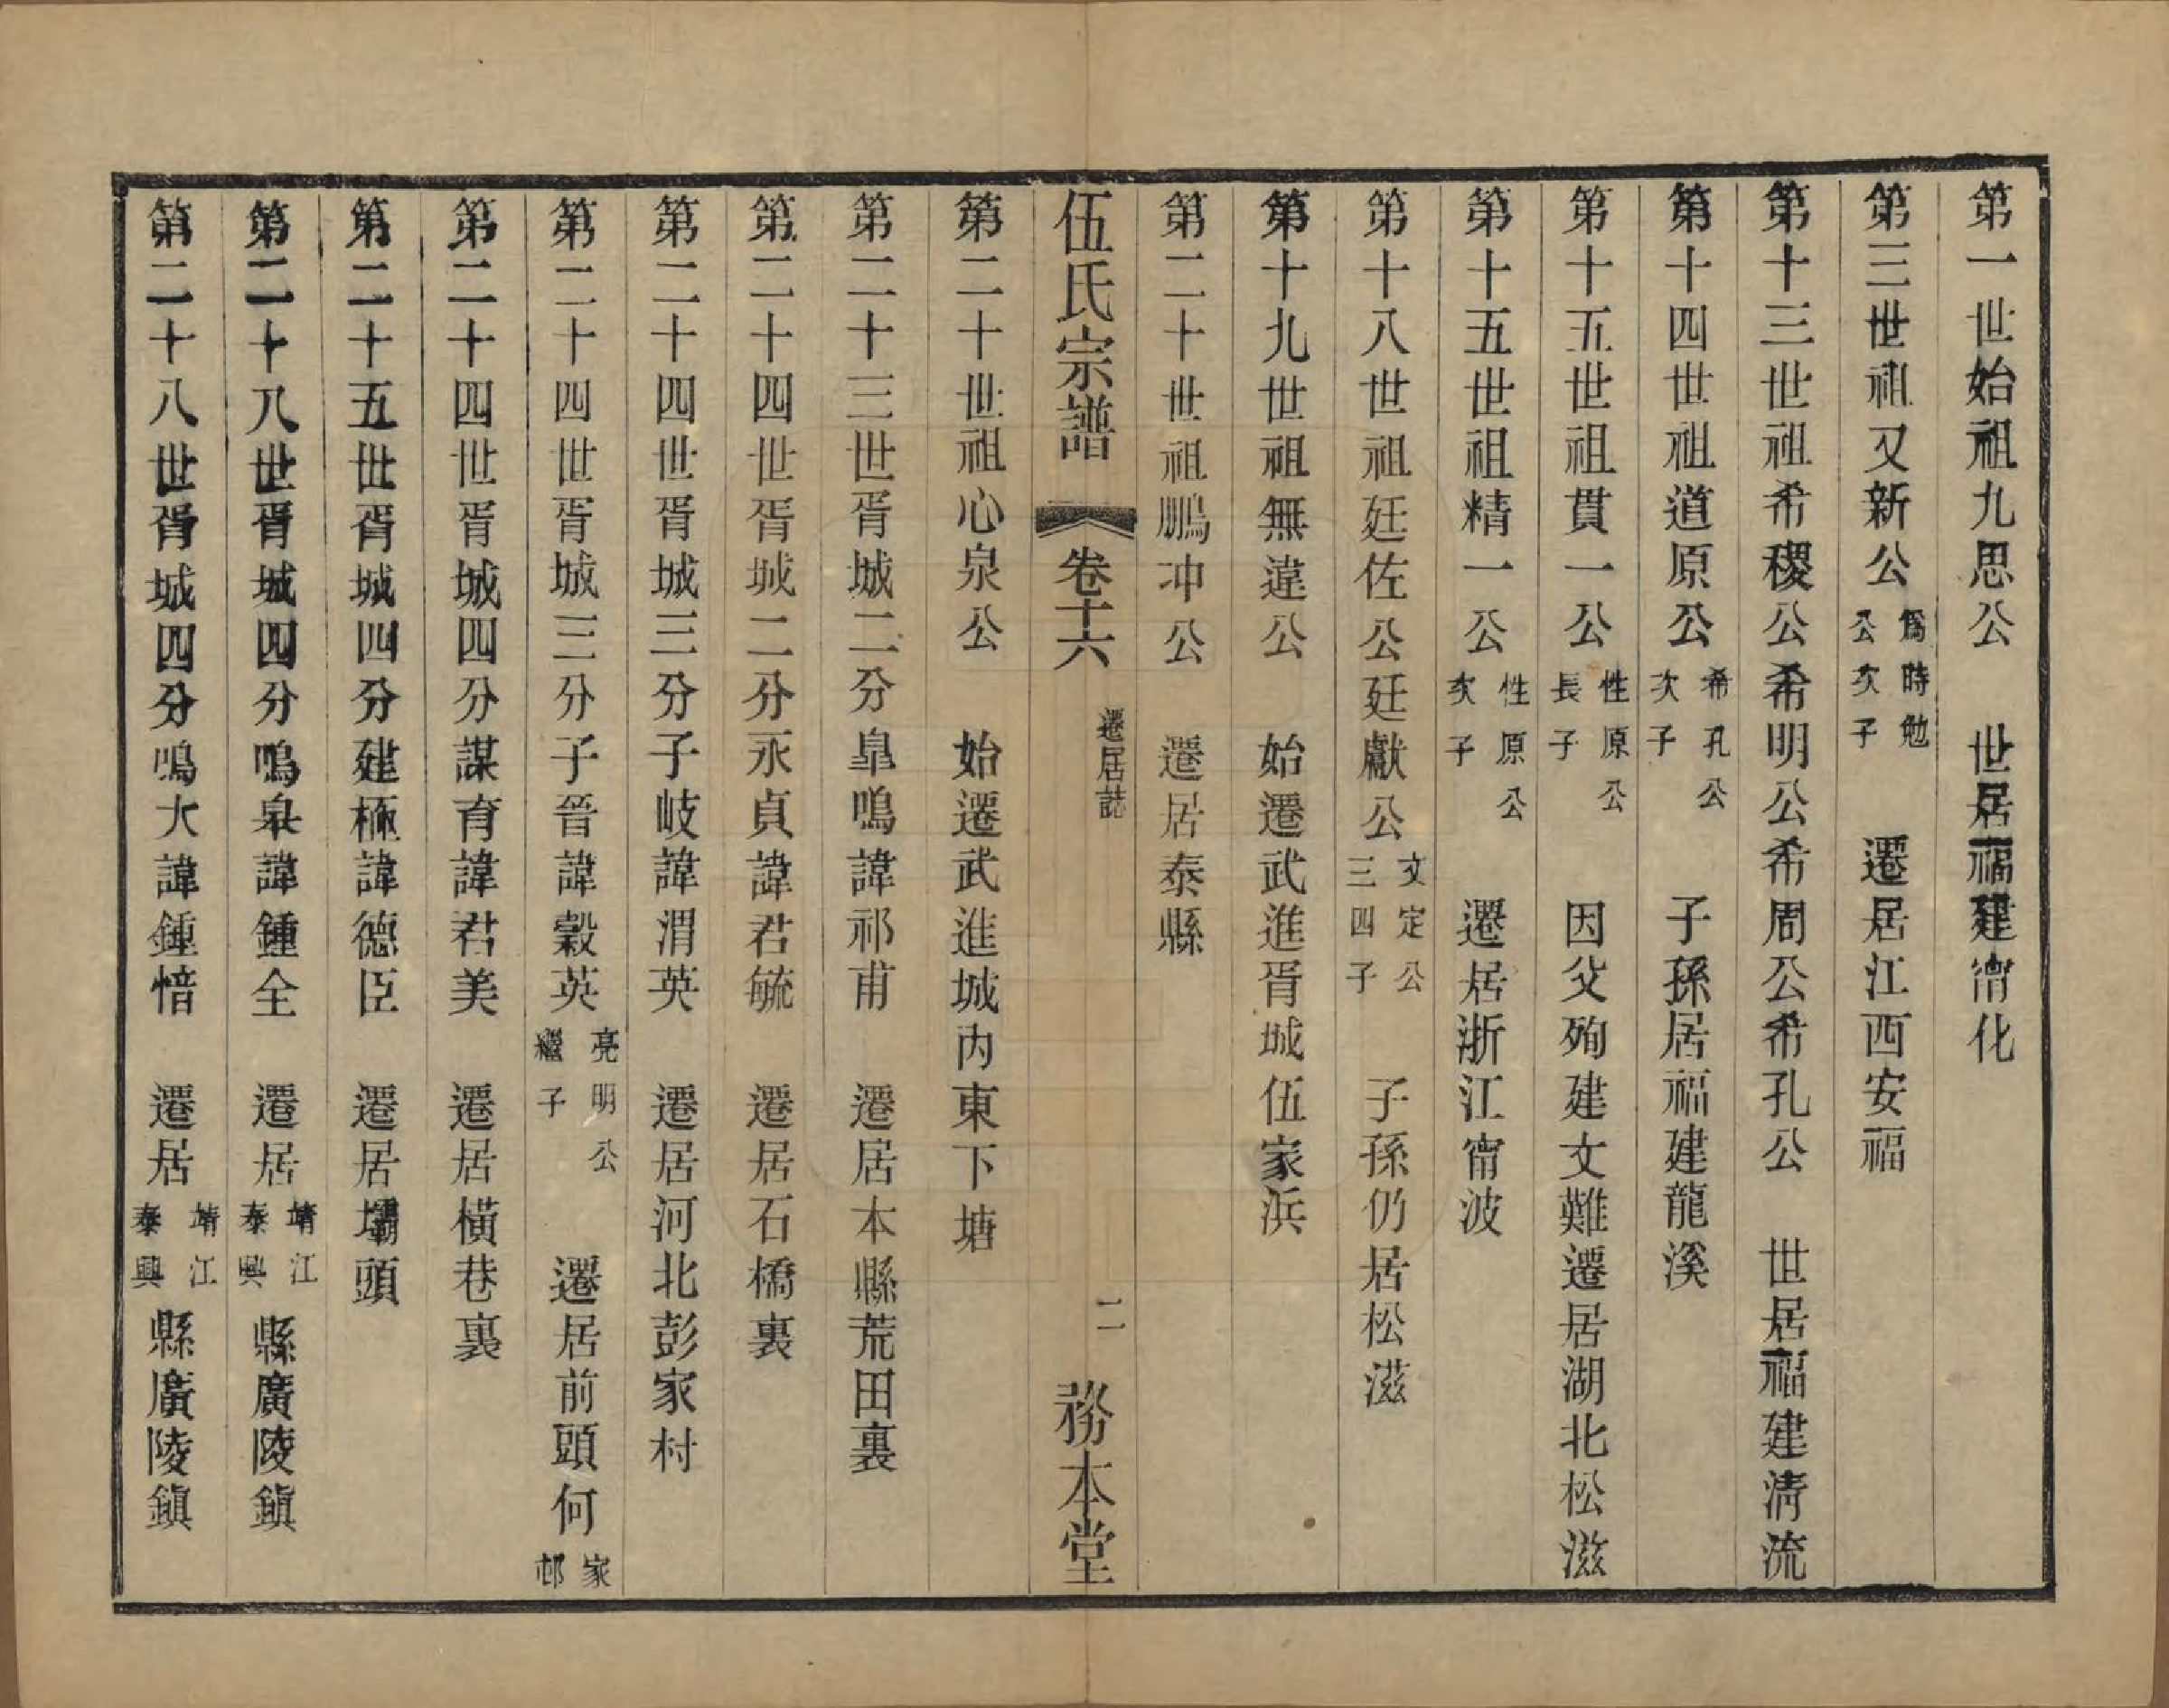 第一世始祖九思公　世居福建甯化
第三世祖又新公為時勉公次子　遷居江西安福
第十三世祖希稷公希明公希周公希孔公　世居福建清流
第十四世祖道原公希孔公次子　子孫居福建龍溪
第十五世祖貫一公性原公長子　因父殉建文難遷居湖北松滋
第十五世祖精一公性原公次子　遷居浙江甯波
第十八世祖廷佐公廷獻公文定公三四子　子孫仍居松滋
第十九世祖無違公　始遷武進胥城伍家浜
第二十世祖鵬冲公　遷居泰縣
伍氏宗譜　卷十六　遷居誌　二　務本堂
第二十世祖心泉公　始遷武進城內東下塘
第二十三世胥城二分臯鳴諱祁甫　遷居本縣荒田裏
第二十四世胥城二分永貞諱君毓　遷居石橋裏
第二十四世胥城三分子岐諱渭英　遷居河北彭家村
第二十四世胥城三分子晉諱穀英亮明公繼子　遷居前頭何家邨
第二十四世胥城四分謀育諱君美　遷居橫巷裏
第二十五世胥城四分建極諱德臣　遷居壩頭
第二十八世胥城四分鳴臯諱鍾全　遷居靖江泰興縣廣陵鎮
第二十八世胥城四分鳴大諱鍾愔　遷居靖江泰興縣廣陵鎮